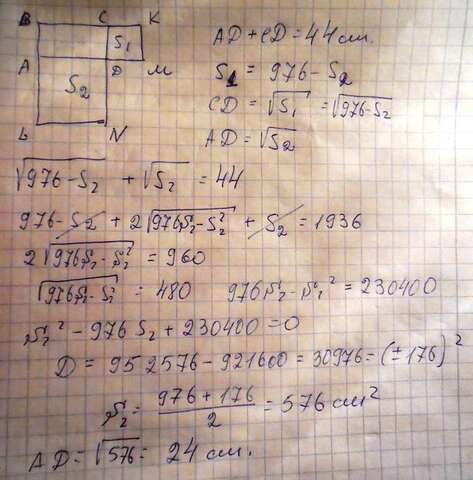 B C K
S₁
A D M
S₂
L N
AD + CD = 44 см.
S₁ = 976 - S₂
CD = √S₁ = √976-S₂
AD = √S₂
√976-S₂ + √S₂ = 44
976 - S₂ + 2√976S₂-S₂² + S₂ = 1936
2√976S₂-S₂² = 960
√976S₂-S₂² = 480 976S₂ - S₂² = 230400
S₂² - 976 S₂ + 230400 = 0
D = 952576 - 921600 = 30976 = (±176)²
S₂ = (976 + 176)/2 = 576 см²
AD = √576 = 24 см.